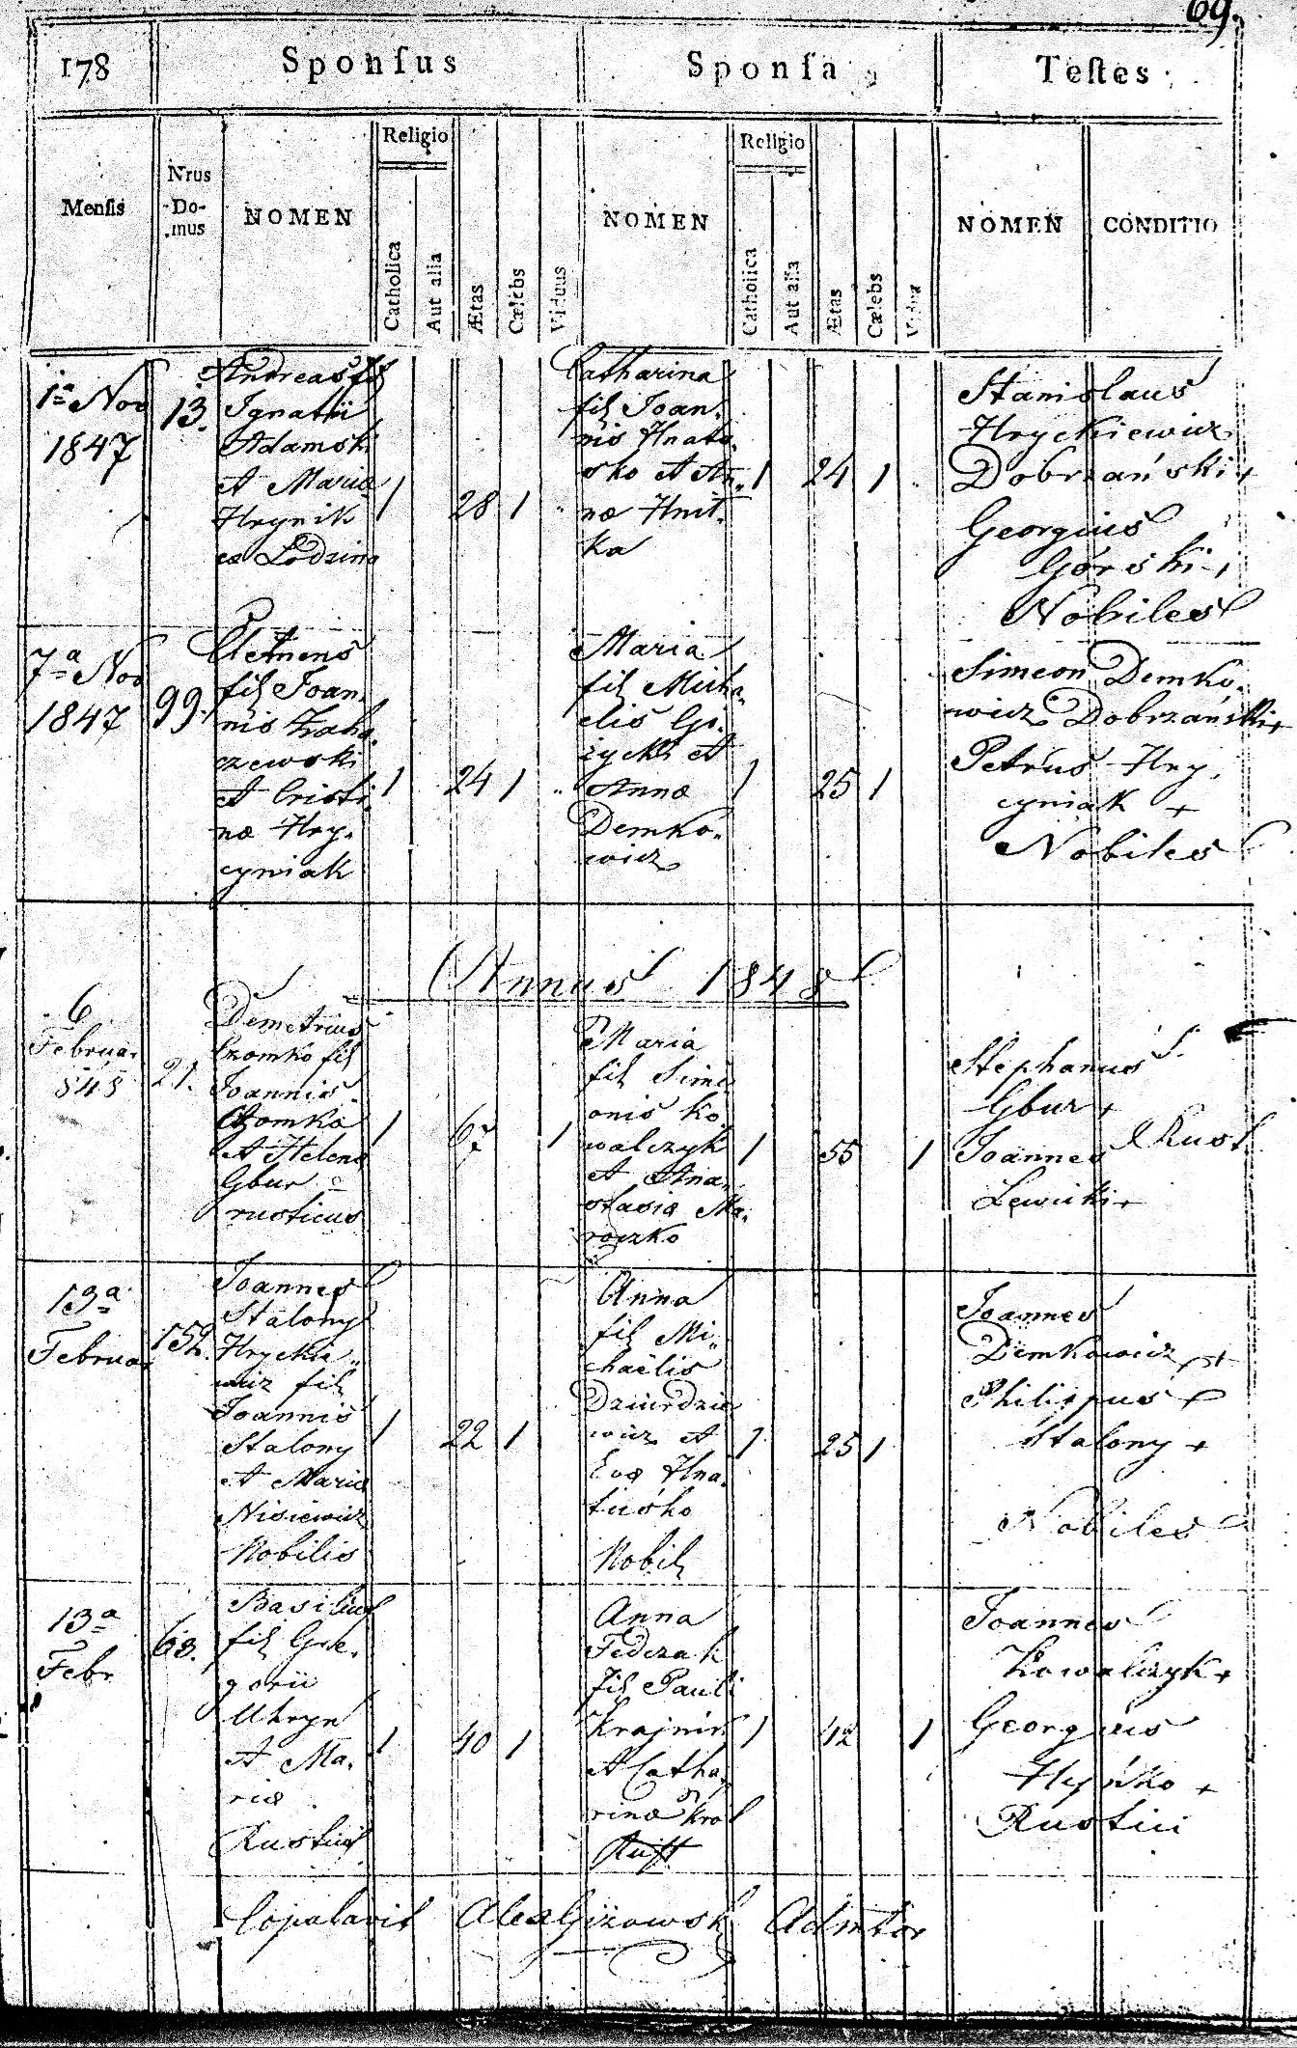 69.
178
Sponſus
Sponſa
Teſtes
Menſis
Nrus
Do-
mus
NOMEN
Religio
Catholica
Aut alia
Ætas
Cælebs
Viduus
NOMEN
Religio
Catholica
Aut alia
Ætas
Cælebs
Vidua
NOMEN
CONDITIO
1a Nov
1847
13.
Andreas fil
Ignatii
Adamski
et Maria
Hrynik
ex Lodzina
1 28 1
Catharina
fil Joan-
nis Hnato
sko et An-
næ Hnit-
ka
1 24 1
Stanislaus
Hryckiewicz
Dobrzański +
Georgius
Górski +
Nobiles
7a Nov
1847
99.
Clemens
fil Joan-
nis Zaha-
czewski
et Cristi-
næ Hry-
cyniak
1 24 1
Maria
fil Micha-
elis Go-
zycki et
Annæ
Demko-
wicz
1 25 1
Simeon Demko-
wicz Dobrzański +
Petrus Hry-
cyniak +
Nobiles
Annus 1848
6
Februar
848
21.
Demetrius
Czomko fil
Joannis
Czomko
et Helenæ
Gbur
rusticus
1 67 1
Maria
fil Sime
onis Ko
walczyk
et Ana-
stasiæ Ma-
roczko
1 55 1
Stephanus
Gbur +
Joannes
Lewicki +
Rust
13a
Februar
152.
Joannes
Stalony
Hryckie-
wicz fil
Joannis
Stalony
et Mariæ
Nisiewicz
Nobilis
1 22 1
Anna
fil Mi-
chaelis
Dziurdzie
wicz et
Evæ Hna-
tuśko
Nobil
1 25 1
Joannes
Demkowicz +
Philippus
Stalony +
Nobiles
13a
Febr
68.
Basilius
fil Gre-
gorii
Uhryn
et Ma-
riæ
Rustici
1 40 1
Anna
Fedczak
fil Pauli
Krajnik
et Catha
rinæ Krol
Rust
1 42 1
Joannes
Kowalczyk +
Georgius
Hyńko +
Rustici
Copulavit Alex Gizowski Admtor